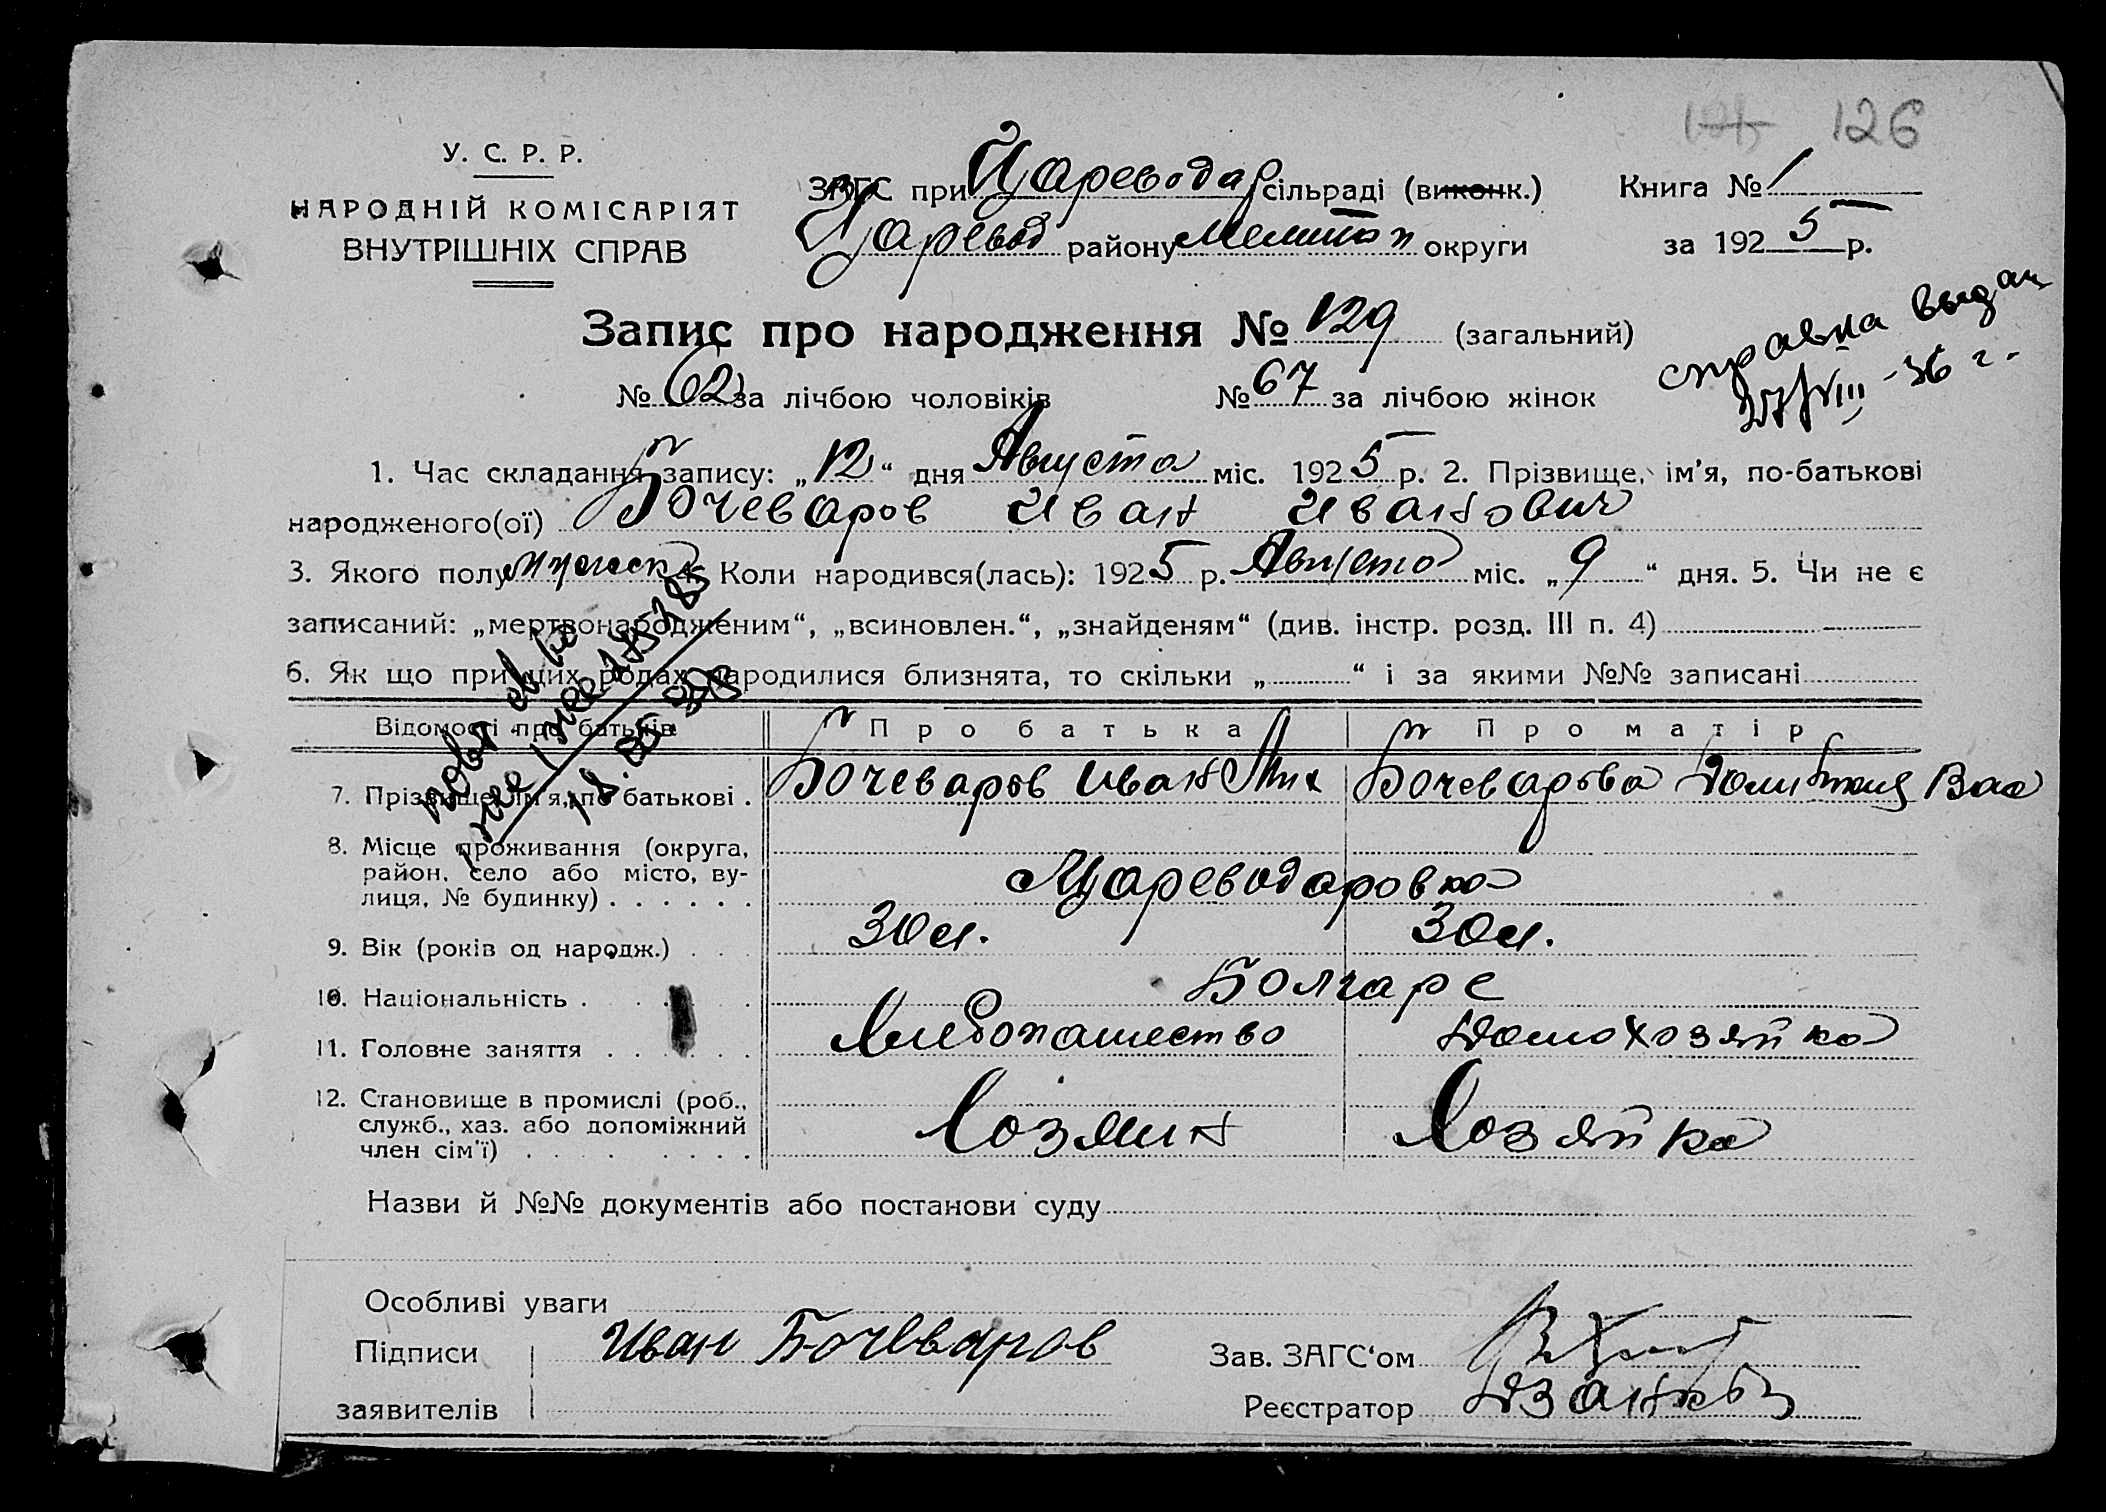 126
У. С. Р. Р.
НАРОДНІЙ КОМІСАРІЯТ
ВНУТРІШНІХ СПРАВ
ЗАГС при Цареводар сільраді (виконк.)
Царевод району Мелитоп округи
Книга № 1
за 1925 р.
Запис про народження № 129 (загальний)
№ 62 за лічбою чоловіків № 67 за лічбою жінок
справка выдан
27/VIII -36 г.
1. Час складання запису: „12“ дня Августа міс. 1925 р. 2. Прізвище, ім'я, по-батькові
народженого(ої) Бочеваров Иван Иванович
3. Якого полу мужеск Коли народився(лась): 1925 р. Августа міс. „9“ дня. 5. Чи не є
записаний: „мертвонародженим“, „всиновлен.“, „знайденям“ (див. інстр. розд. III п. 4)
6. Як що при цих родах народилися близнята, то скільки „ “ і за якими №№ записані
Відомості про батьків Про батька Про матір
7. Прізвище, ім'я, по батькові . Бочеваров Иван Бочеварова Вас
8. Місце проживання (округа,
район, село або місто, ву-
лиця, № будинку) . . . . . . Цареводаровка
9. Вік (років од народж.) . . . 30 л. 30 л.
10. Національність . . . . Болгаре
11. Головне заняття . . . . . . Хлебопашество Домохозяйка
12. Становище в промислі (роб.,
служб., хаз. або допоміжний
член сім'ї) . . . . . . . . . Хозяин Хозяйка
Назви й №№ документів або постанови суду
Особливі уваги
Підписи Иван Бочеваров Зав. ЗАГС‘ом
заявителів Реєстратор